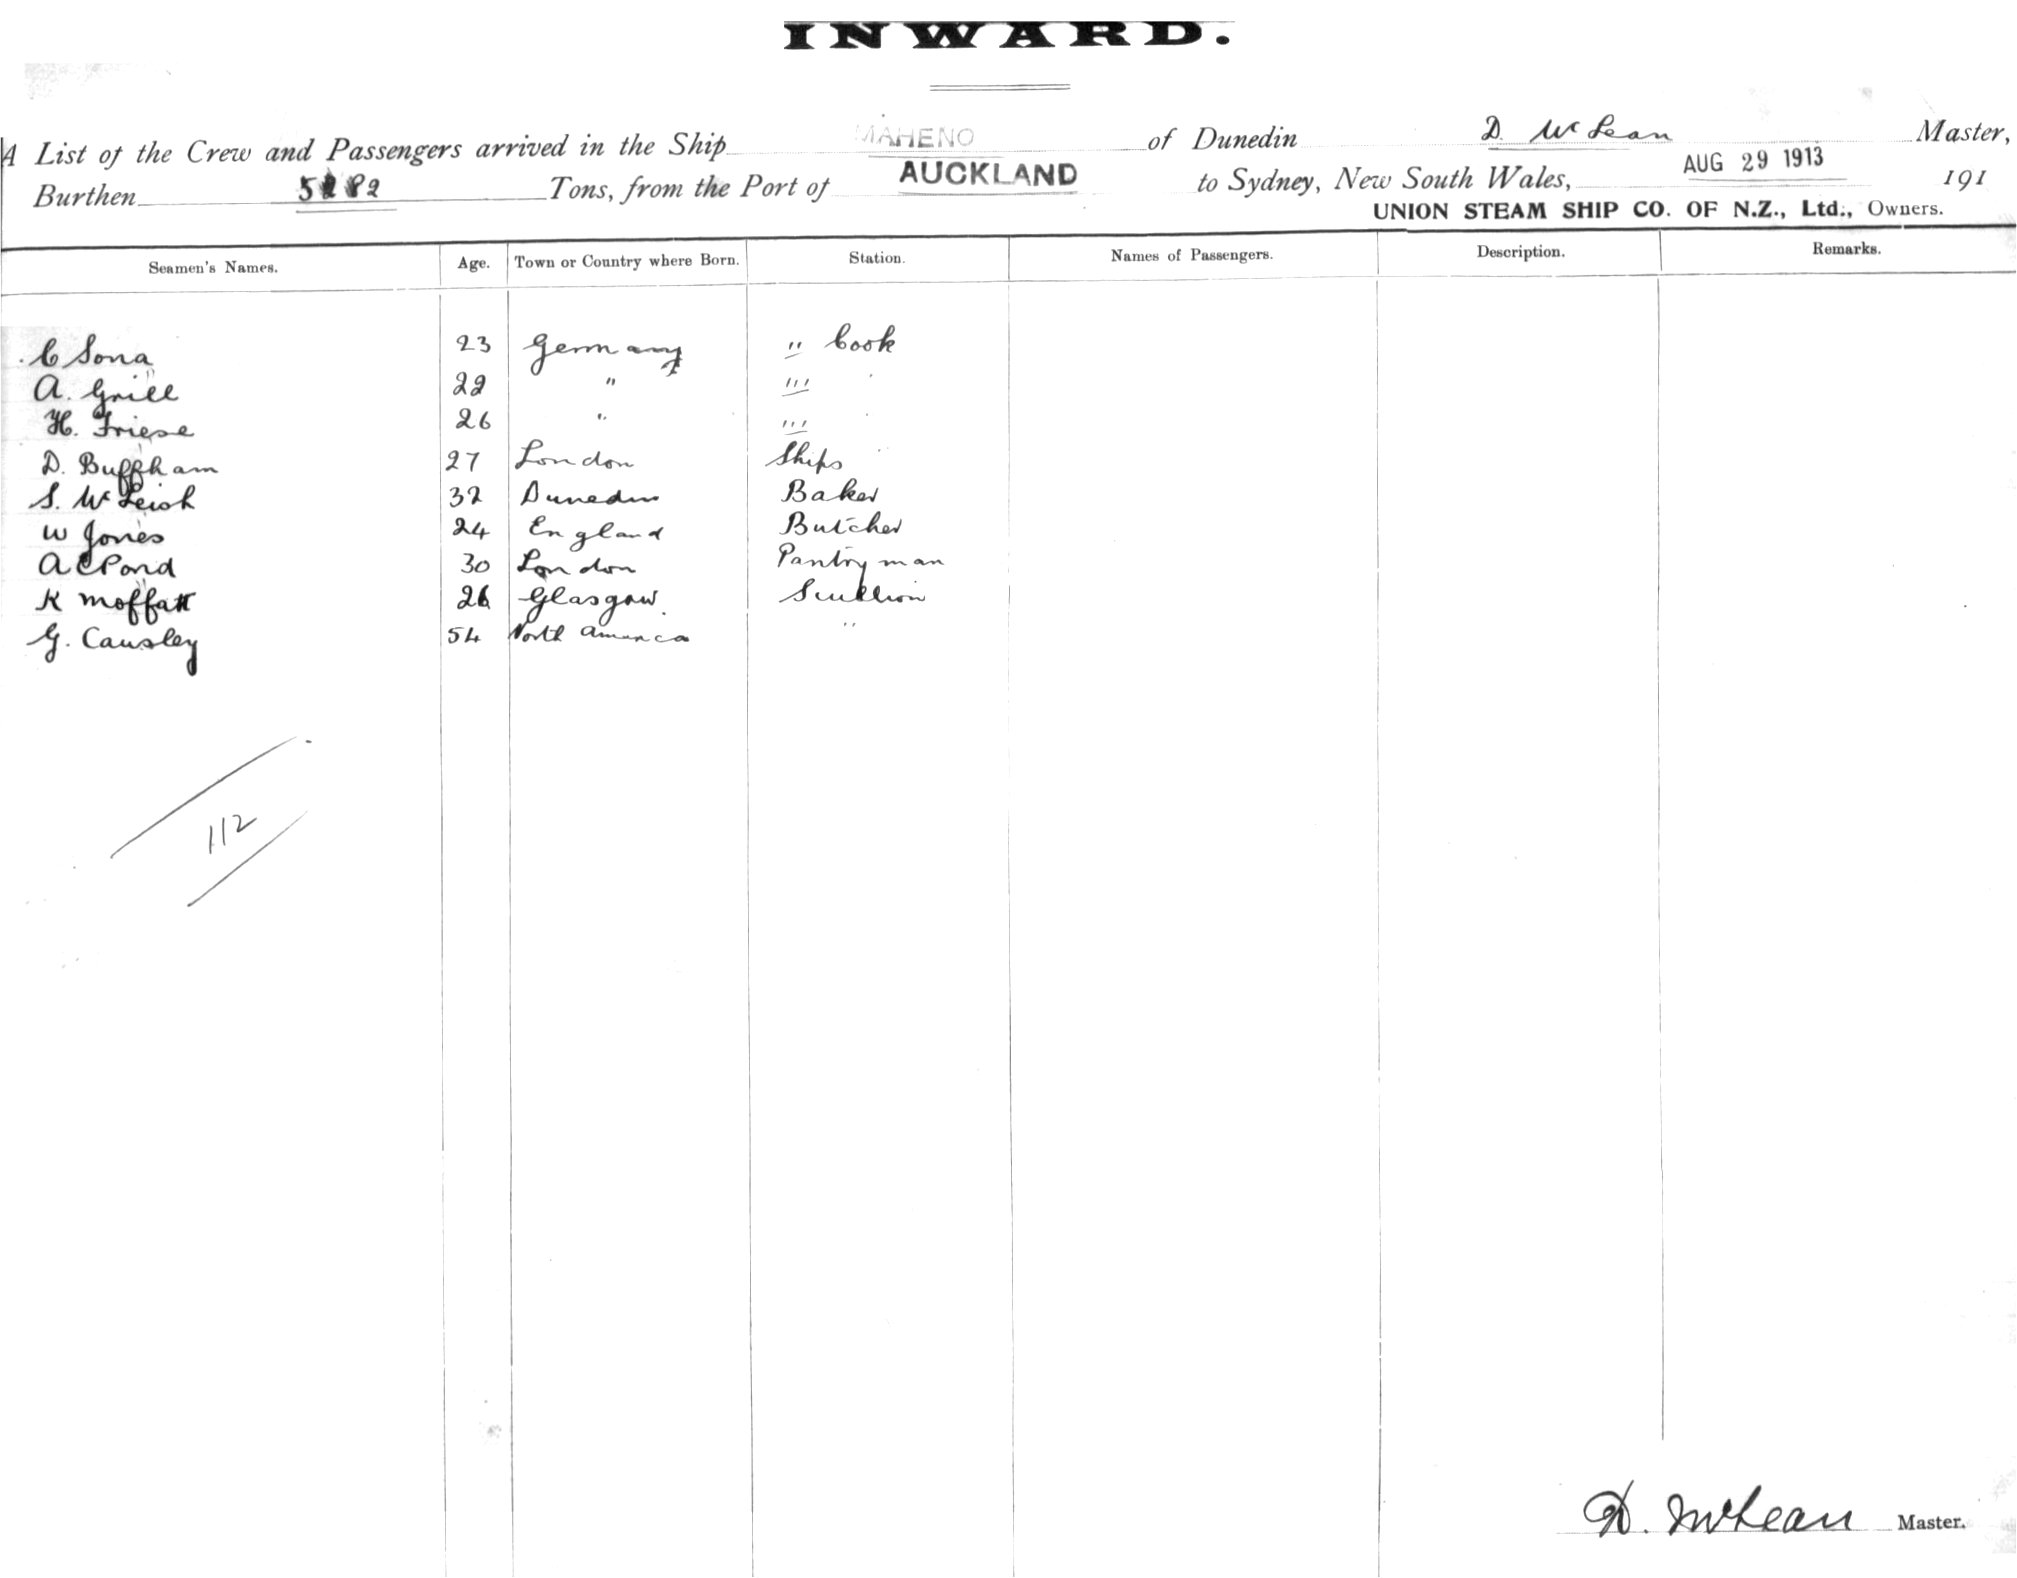 INWARD.
A List of the Crew and Passengers arrived in the Ship MAHENO of Dunedin D. McLean Master,
Burthen 5282 Tons, from the Port of AUCKLAND to Sydney, New South Wales, AUG 29 1913 191
UNION STEAM SHIP CO. OF N.Z., Ltd., Owners.
Seamen's Names. Age. Town or Country where Born. Station. Names of Passengers. Description. Remarks.
C Sona 23 Germany " Cook
A. Grill 22 " "'
H. Friese 26 " "'
D. Buffham 27 London Ships
S. McLeish 32 Dunedin Baker
W Jones 24 England Butcher
A C Pond 30 London Pantryman
K Moffatt 26 Glasgow. Scullion
G. Causley 54 North America "
112
D. McLean Master.